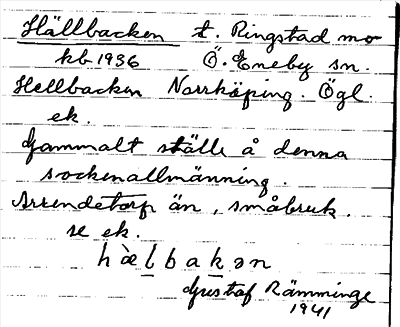 Hällbacken t. Ringstad mo
kb 1936 Ö. Eneby sn.
Hellbacken Norrköping. Ögl.
ek.
Gammalt ställe å denna
sockenallmänning.
Arrendetorp än, småbruk.
se ek.
hàlbakən
Gustaf Rämminge
1941